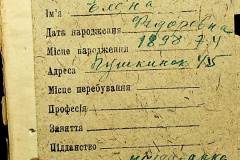 Ім'я Елена
Федоровна
Дата народження
Місце народження 1898 7/4
Адреса Пушкинск 4/35
Місце перебування
Професія
Заняття
Підданство